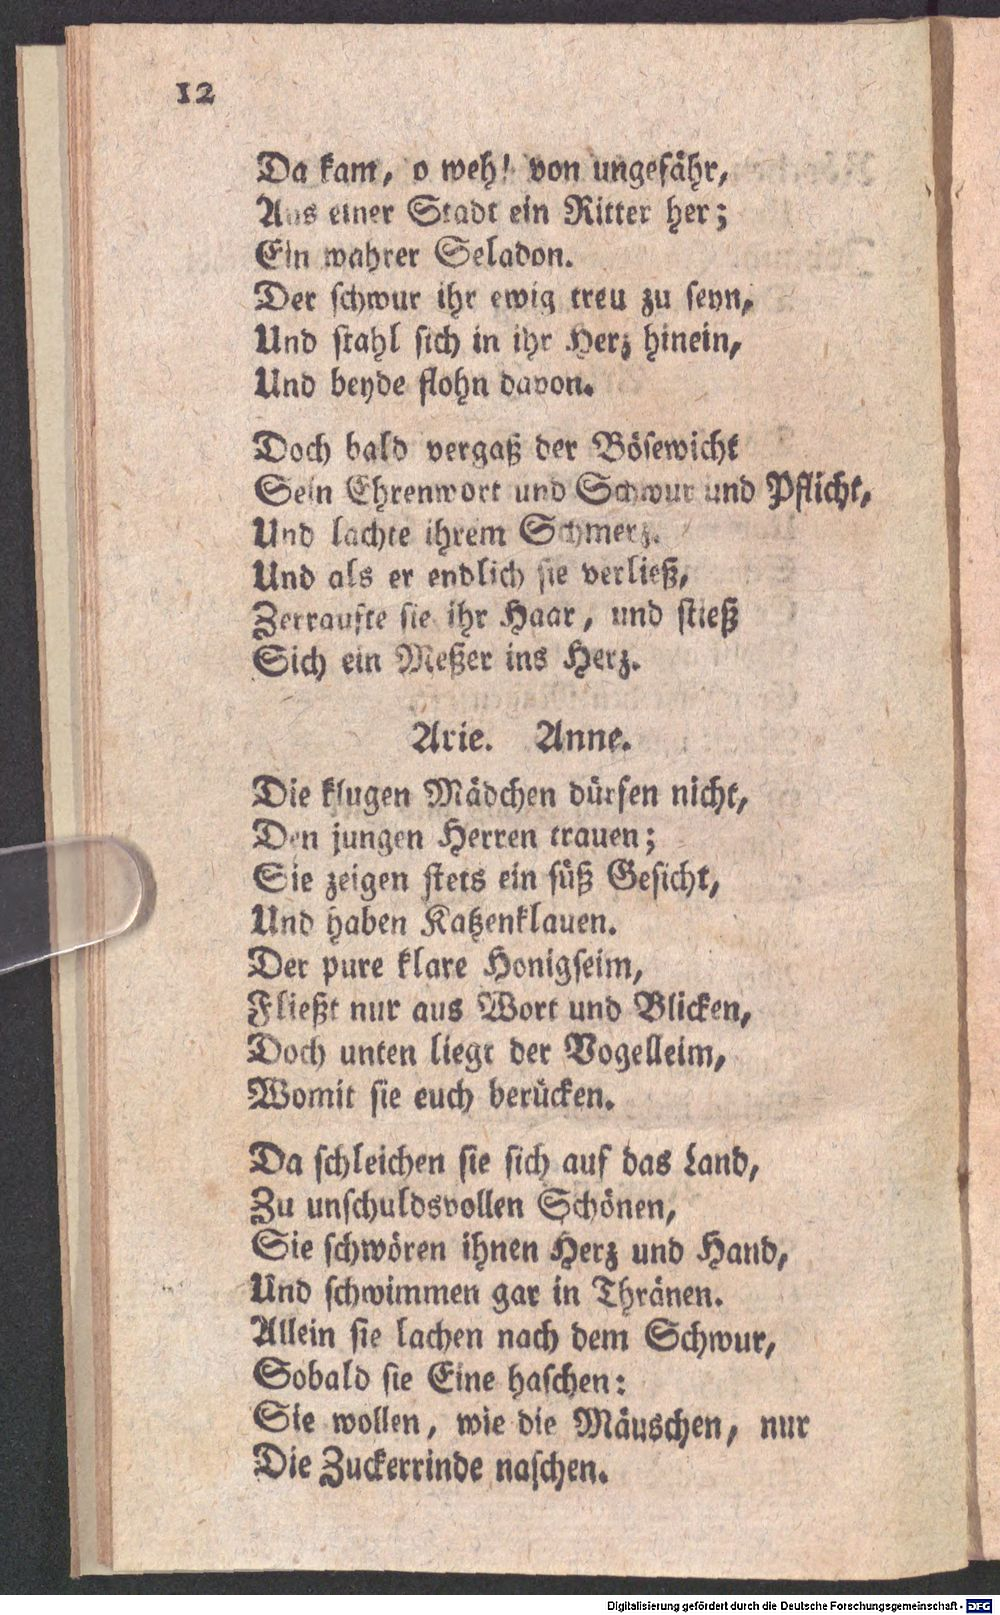 12
Da kam, o weh! von ungefähr,
Aus einer Stadt ein Ritter her;
Ein wahrer Seladon.
Der schwur ihr ewig treu zu seyn,
Und stahl sich in ihr Herz hinein,
Und beyde flohn davon.
Doch bald vergaß der Bösewicht
Sein Ehrenwort und Schwur und Pflicht,
Und lachte ihrem Schmerz.
Und als er endlich sie verließ,
Zerraufte sie ihr Haar, und stieß
Sich ein Meßer ins Herz.
Arie. Anne.
Die klugen Mädchen dürfen nicht,
Den jungen Herren trauen;
Sie zeigen stets ein süß Gesicht,
Und haben Katzenklauen.
Der pure klare Honigseim,
Fließt nur aus Wort und Blicken,
Doch unten liegt der Vogelleim,
Womit sie euch berücken.
Da schleichen sie sich auf das Land,
Zu unschuldsvollen Schönen,
Sie schwören ihnen Herz und Hand,
Und schwimmen gar in Thränen.
Allein sie lachen nach dem Schwur,
Sobald sie Eine haschen:
Sie wollen, wie die Mäuschen, nur
Die Zuckerrinde naschen.
Digitalisierung gefördert durch die Deutsche Forschungsgemeinschaft - DFG